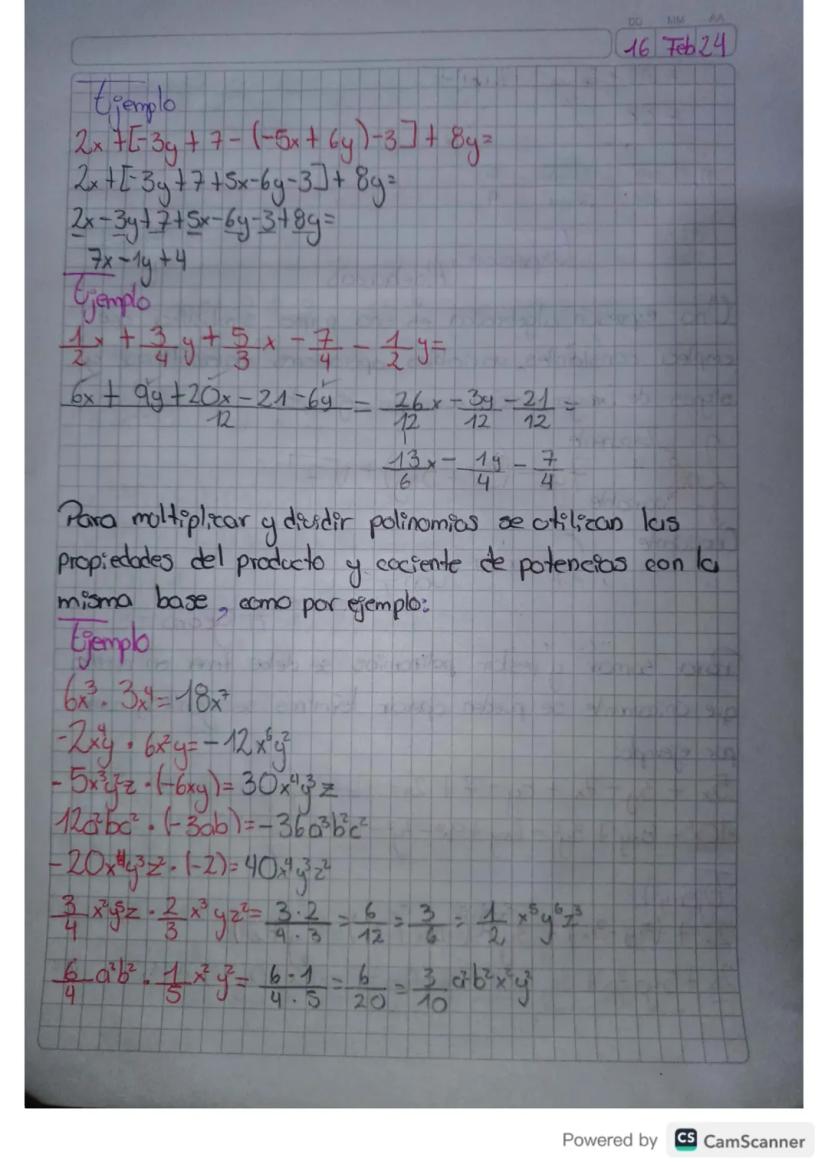 DD MM AA
16 Feb 24
Ejemplo
2x+[-3y+7-(-5x+6y)-3]+8y=
2x+[-3y+7+5x-6y-3]+8y=
2x-3y+7+5x-6y-3+8y=
7x-1y+4
Ejemplo
1/2 x + 3/4 y + 5/3 x - 7/4 - 1/2 y=
6x+9y+20x-21-6y/12 = 26x/12 - 3y/12 - 21/12 =
13x/6 - 1y/4 - 7/4
Para moltiplicar y dividir polinomios se utilizan las
propiedades del producto y cociente de potencias con la
misma base, como por ejemplo:
Ejemplo
6x³ · 3x⁴=18x⁷
-2x⁴y · 6x²y=-12x⁶y²
-5x³y²z · (-6xy)=30x⁴y³z
12a²bc² · (-3ab)=-36a³b²c²
-20x⁴y³z² · (-2)=40x⁴y³z²
3/4 x²y⁵z · 2/3 x³yz²= 3·2/4·3 = 6/12 = 3/6 = 1/2 x⁵y⁶z³
6/4 a²b² · 1/5 x²y²= 6·1/4·5 = 6/20 = 3/10 a²b²x²y²
Powered by CS CamScanner